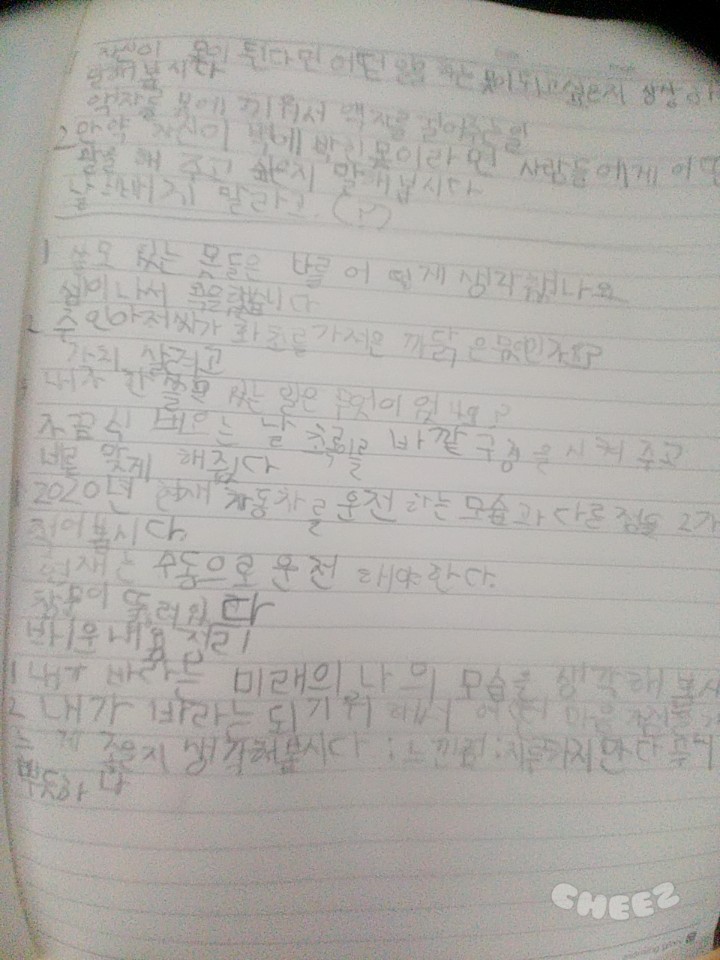 자신이 못이 된다면 어떤 일을 하는 못이 되고 싶은지 상상하
말해봅시다
액자를 못에 끼워서 액자를 걸어주는 일
2 만약 자신이 벽에 박힌 못이라면 사람들에게 어떤
말을 해 주고 싶은지 말해봅시다
말라고. (?)
1 쓸모 있는 못들은 나를 어떻게 생각했나요
2 주인아저씨가 화초를 가져온 까닭은 무엇인가요?
내가 한 쓸모 있는 일은 무엇이 있나요?
조끔씩 내으는 날 초록이를 바깥 구경을 시켜 주고
1 2020년 현재 자동차를 운전하는 모습과 다른 점을 2가
적어봅시다.
현재는 수동으로 운전 해야한다.
창문이 뚤려있다
배운내용 정리
1 내가 바라는 미래의 나의 모습을 생각해 봅시
2 내가 바라는 되기 위해서 어떤 마음
는게 좋을지 생각해봅시다 : 느낀점 : 지루하지만 다
뿌듯하다
CHEEZ